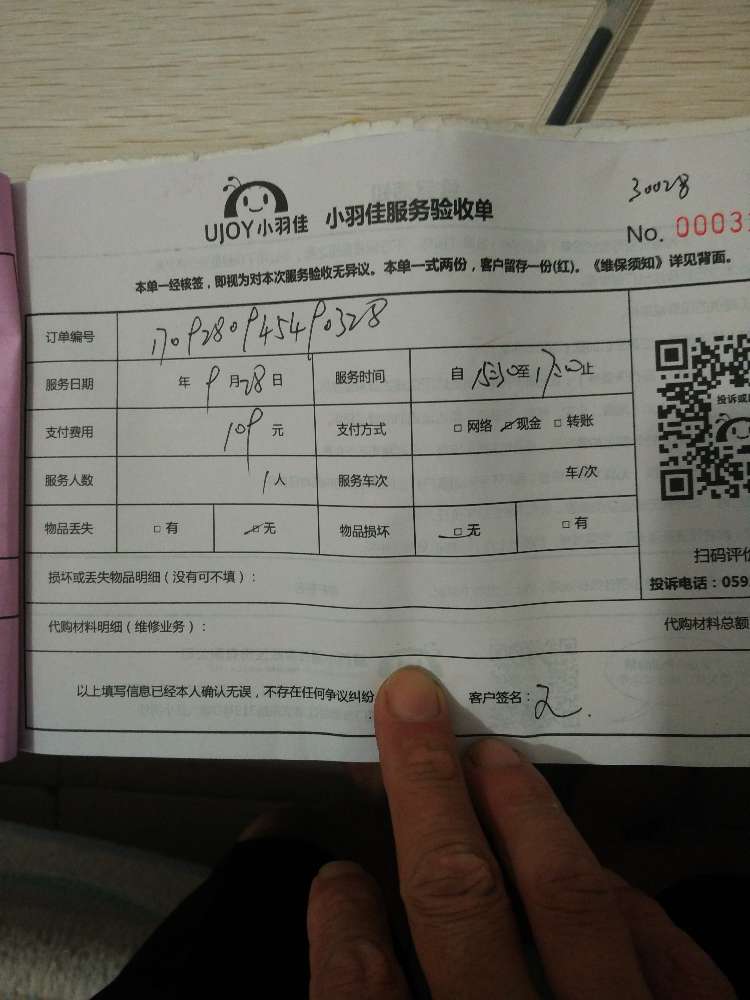 30028
UJOY小羽佳 小羽佳服务验收单
No. 00031
本单一经核签，即视为对本次服务验收无异议。本单一式两份，客户留存一份(红)。《维保须知》详见背面。
订单编号 1709280945490328
服务日期 年 9 月 28 日 服务时间 自 15:30 至 17:30 止
投诉或
支付费用 109 元 支付方式 □ 网络 ☑ 现金 □ 转账
服务人数 1 人 服务车次 车/次
物品丢失 □ 有 ☑ 无 物品损坏 ☑ 无 □ 有
扫码评价
损坏或丢失物品明细（没有可不填）：
投诉电话：059
代购材料明细（维修业务）： 代购材料总额
以上填写信息已经本人确认无误，不存在任何争议纠纷 客户签名：